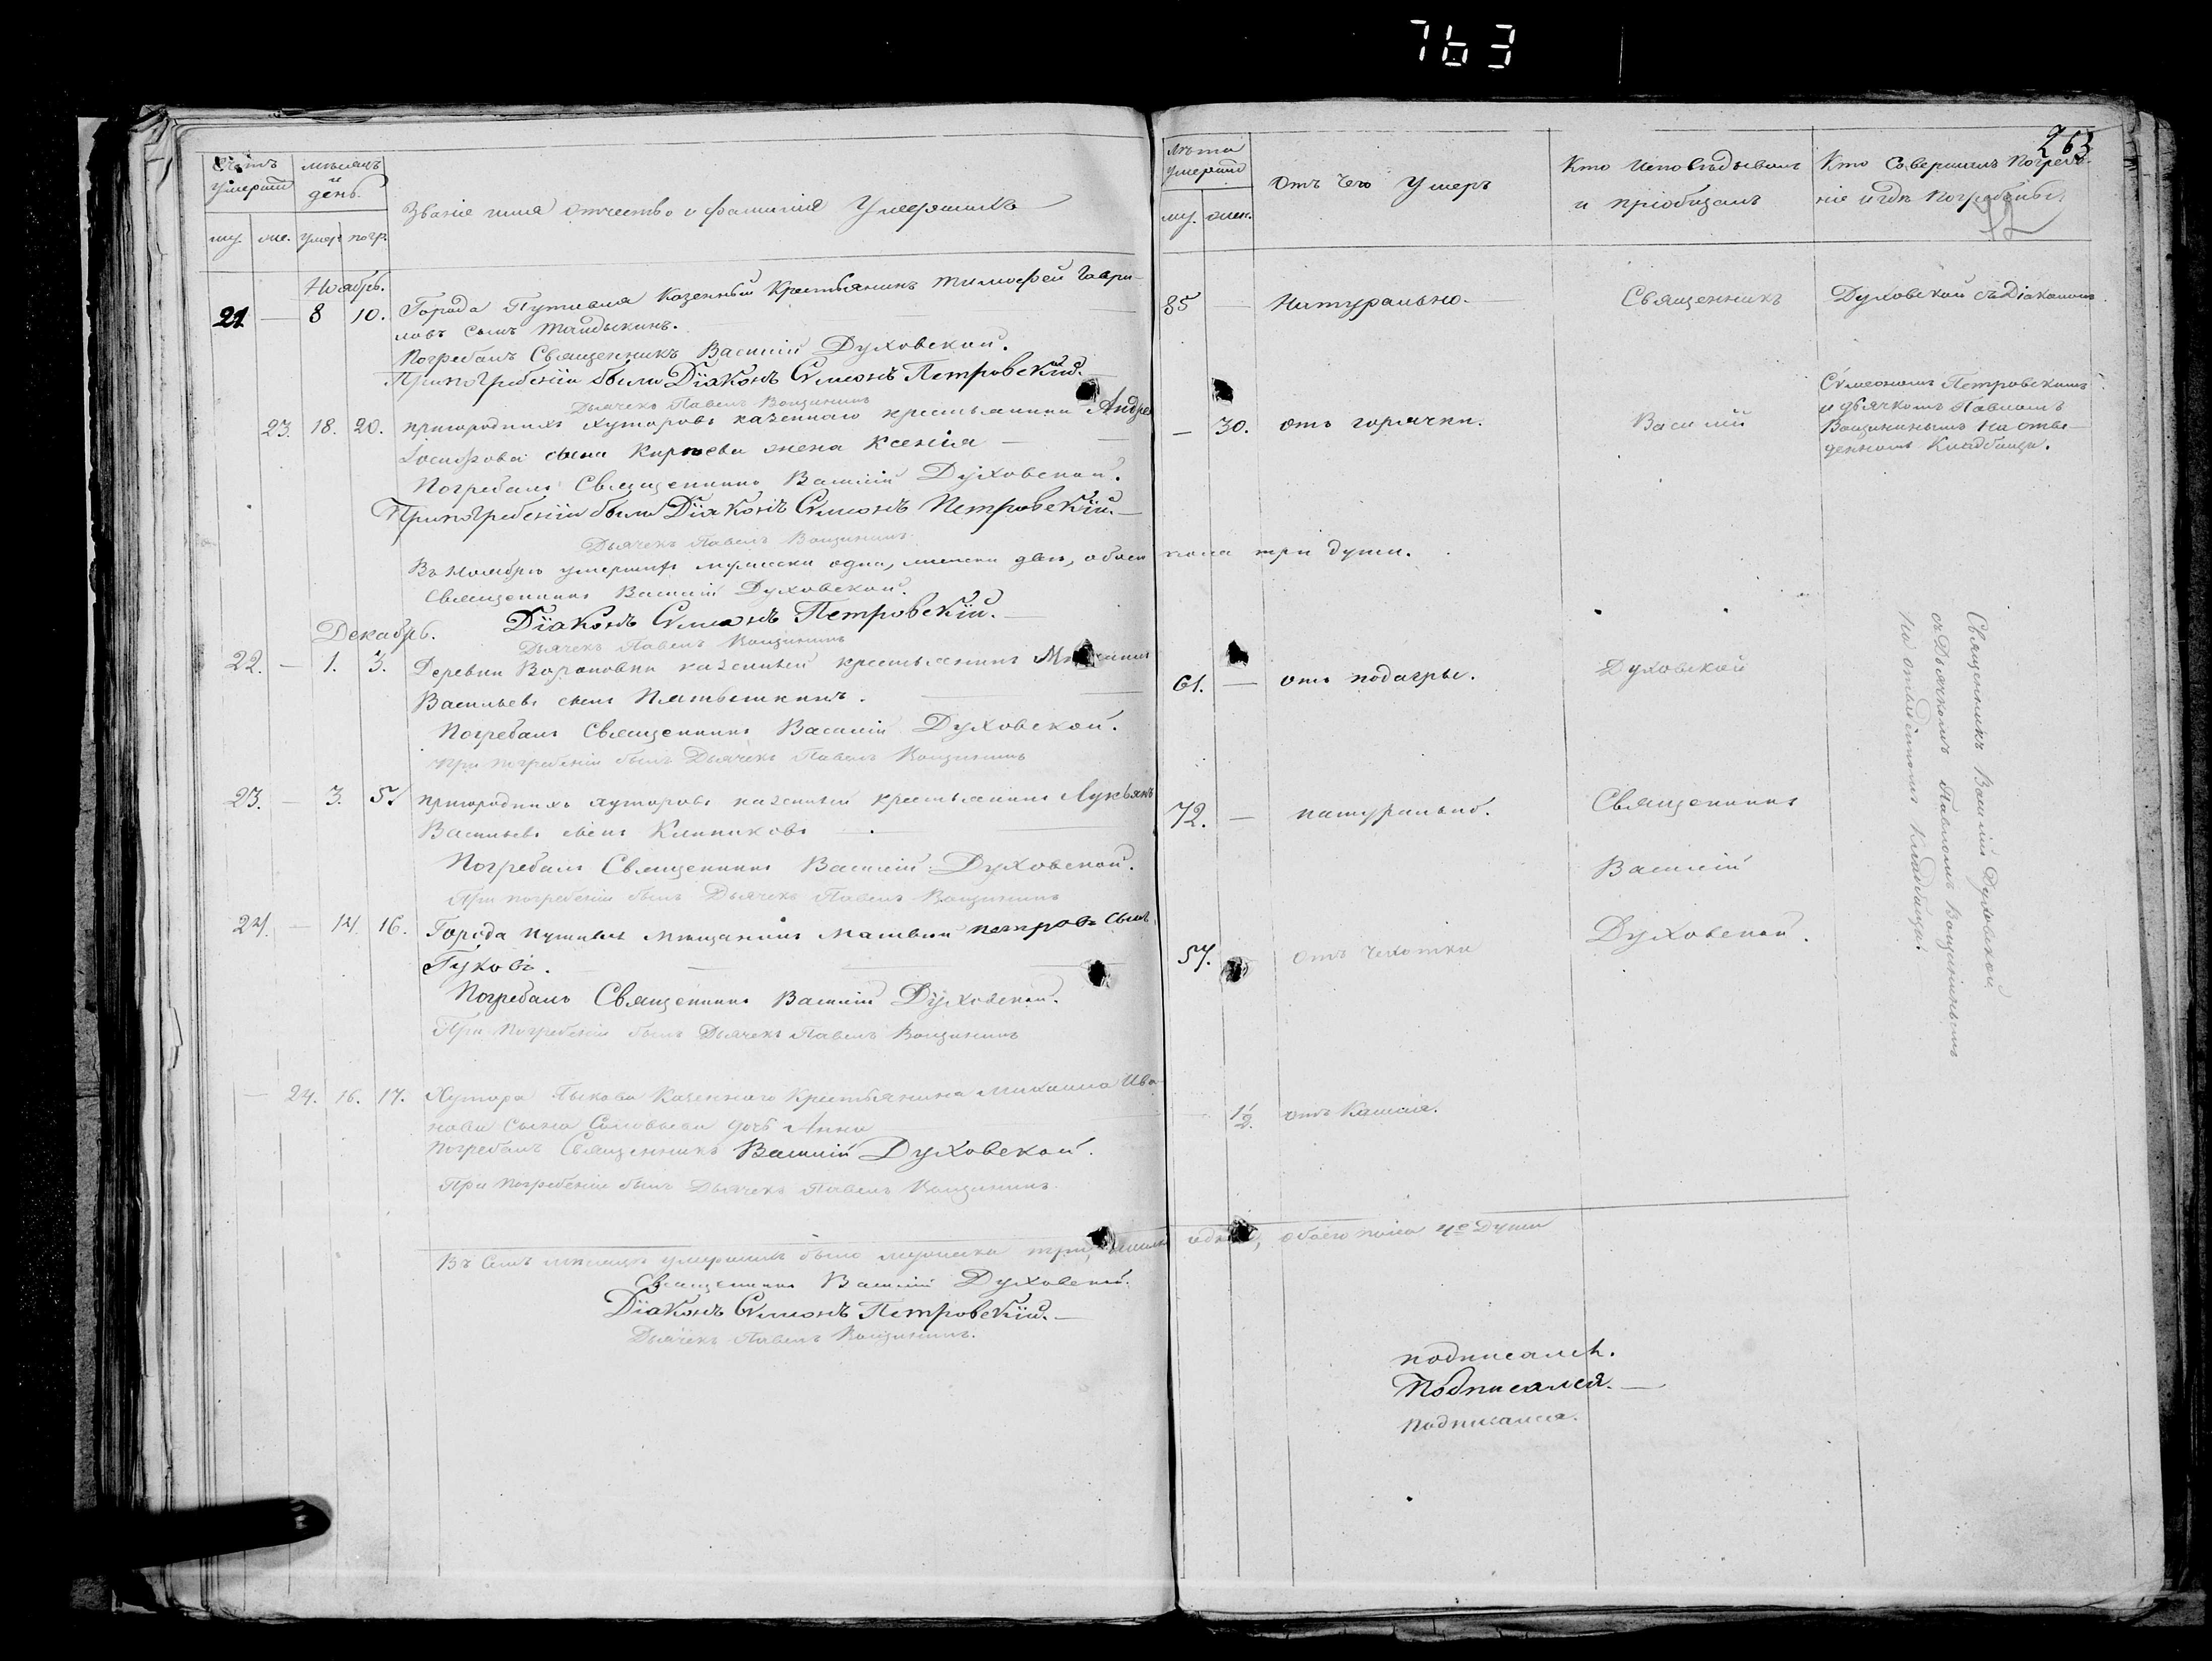 763
263
Счетъ умершихъ
мѣсяцъ и день.
Званіе имя отчество и фамилія Умершихъ
Лѣта умершихъ
Отъ чего Умеръ
Кто Исповѣдывалъ и пріобщалъ
Кто Совершалъ Погребеніе и гдѣ Погребены.
му. же. умер. погр.
му. жен.
Ноябрь.
21 — 8 10. Города Путивля Казенный Крестьянинъ Тимофей Гаври-
ловъ сынъ
85 — Натурально. —
Священникъ
Духовской съ Діакономъ
Погребалъ Священникъ Василій Духовской.
При погребеніи были Діаконъ Сѵмеонъ Петровскій.
Дьячекъ Павелъ Вощининъ
Сѵмеономъ Петровскимъ
и дьячкомъ Павломъ
Вощининымъ на отве-
денномъ Кладбищѣ.
23. 18. 20. пригородныхъ хуторовъ казеннаго крестьянина Андрея
Іосифова сына Кирѣева жена Ксенія —
— 30. отъ горячки.
Василій
Погребалъ Священникъ Василій Духовской.
При погребеніи были Діаконъ Сѵмеонъ Петровскій. —
Дьячекъ Павелъ Вощининъ.
Въ Ноябрѣ умершихъ мужеска одна, женска двѣ, обоего пола три души.
Священникъ Василій Духовской.
Діаконъ Сѵмеонъ Петровскій. —
Дьячекъ Павелъ Вощининъ
Декабрь.
22. — 1. 3. Деревни Вороновки казенный крестьянинъ
Васильевъ сынъ
61. — отъ подагры.
Духовской
Погребалъ Священникъ Василій Духовской.
При погребеніи былъ Дьячекъ Павелъ Вощининъ
23. — 3. 5. пригородныхъ хуторовъ казенный крестьянинъ Лукьянъ
Васильевъ сынъ Клипиковъ —
72. — натурально.
Священникъ
Погребалъ Священникъ Василій Духовской.
Василій
При погребеніи былъ Дьячекъ Павелъ Вощининъ
24. — 14. 16. Города Путивля мѣщанинъ Матвей Петровъ Сынъ
Гуковъ. —
57. отъ чехотки
Духовской.
Погребалъ Священникъ Василій Духовской.
При Погребеніи былъ Дьячекъ Павелъ Вощининъ
Священникъ Василій Духовской
съ Дьячкомъ Павломъ Вощининымъ
на отведенномъ Кладбищѣ.
— 24. 16. 17. Хутора Казеннаго Крестьянина Михаила Ива-
нова Сына Соловьева дочь Анна
— 1/2. отъ Кашля.
Погребалъ Священникъ Василій Духовской.
При Погребеніи былъ Дьячекъ Павелъ Вощининъ.
Въ семъ мѣсяцѣ умершихъ было мужеска три, женска одна, обоего пола 4е Души
Священникъ Василій Духовской.
Діаконъ Сѵмеонъ Петровскій. —
Дьячекъ Павелъ Вощининъ.
подписалъ.
Подписался. —
подписался.